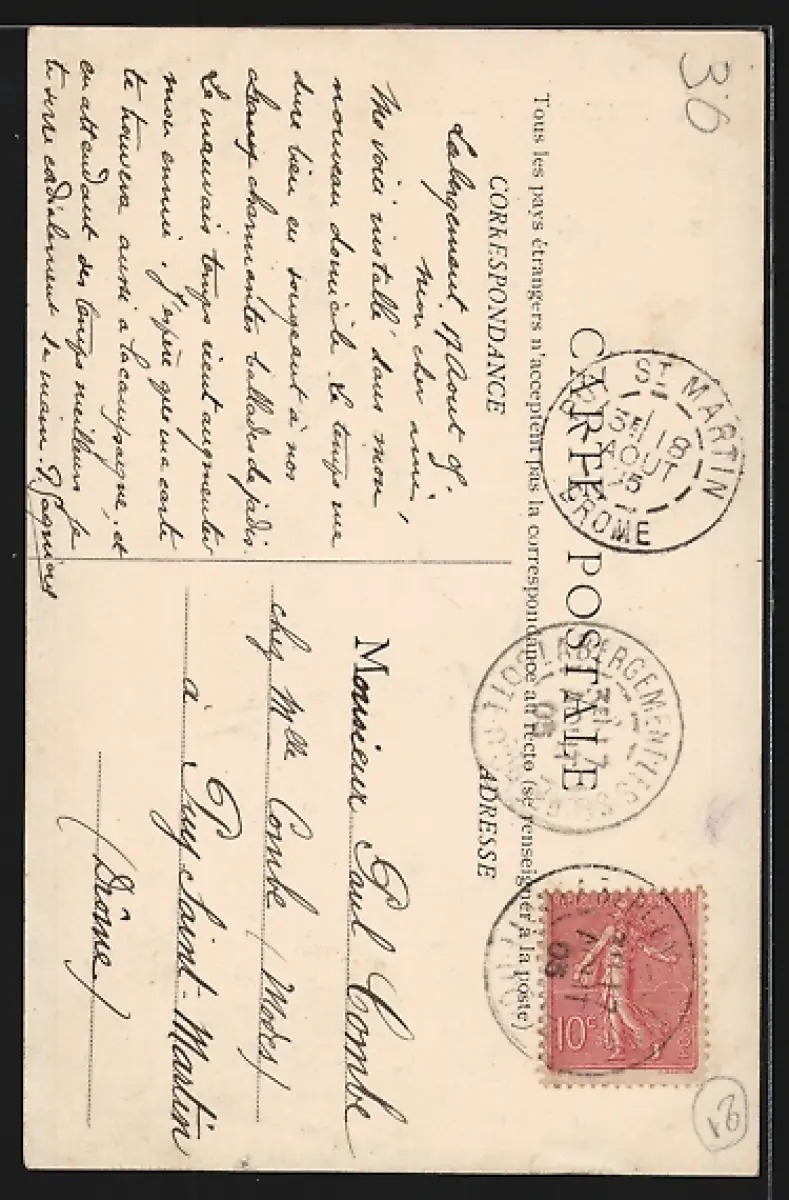 36
CARTE POSTALE
Tous les pays étrangers n'acceptent pas la correspondance au recto (se renseigner à la poste)
CORRESPONDANCE
ADRESSE
Labergement 17 Aout 05.
Mon cher ami,
Me voici installé dans mon
nouveau domicile. Le temps me
dure bien en songeant à nos
charmantes ballades de jadis.
Le mauvais temps vient augmenter
mon ennui. J'espère que ma carte
te trouvera aussi à la campagne, et
en attendant des temps meilleurs je
te serre cordialement la main.
Monsieur Paul Combe
chez Mlle Combe (Modes)
à Puy Saint-Martin
(Drôme)
ST MARTIN
18
AOUT
05
DROME
LABERGEMENT LES
17
05
AOUT
05
10c
12